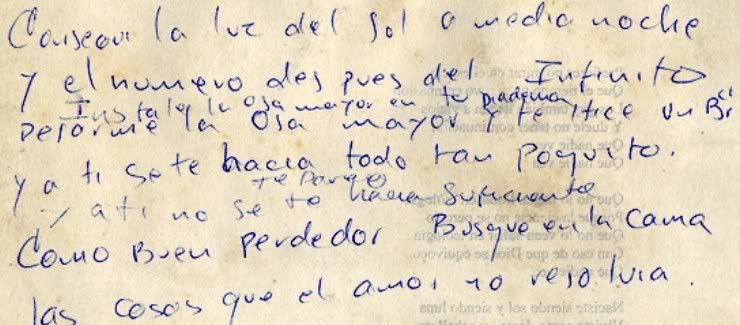 Conseguí la luz del sol a media noche
Y el numero des pues del Infinito
Instale la Osa mayor en tu diadema
la Osa mayor y te hice un
y a ti se te hacia todo tan poquito.
te parecio
y a ti no se to hacia suficiente
Como Buen perdedor Busque en la cama
las cosas que el amor no resolvia.